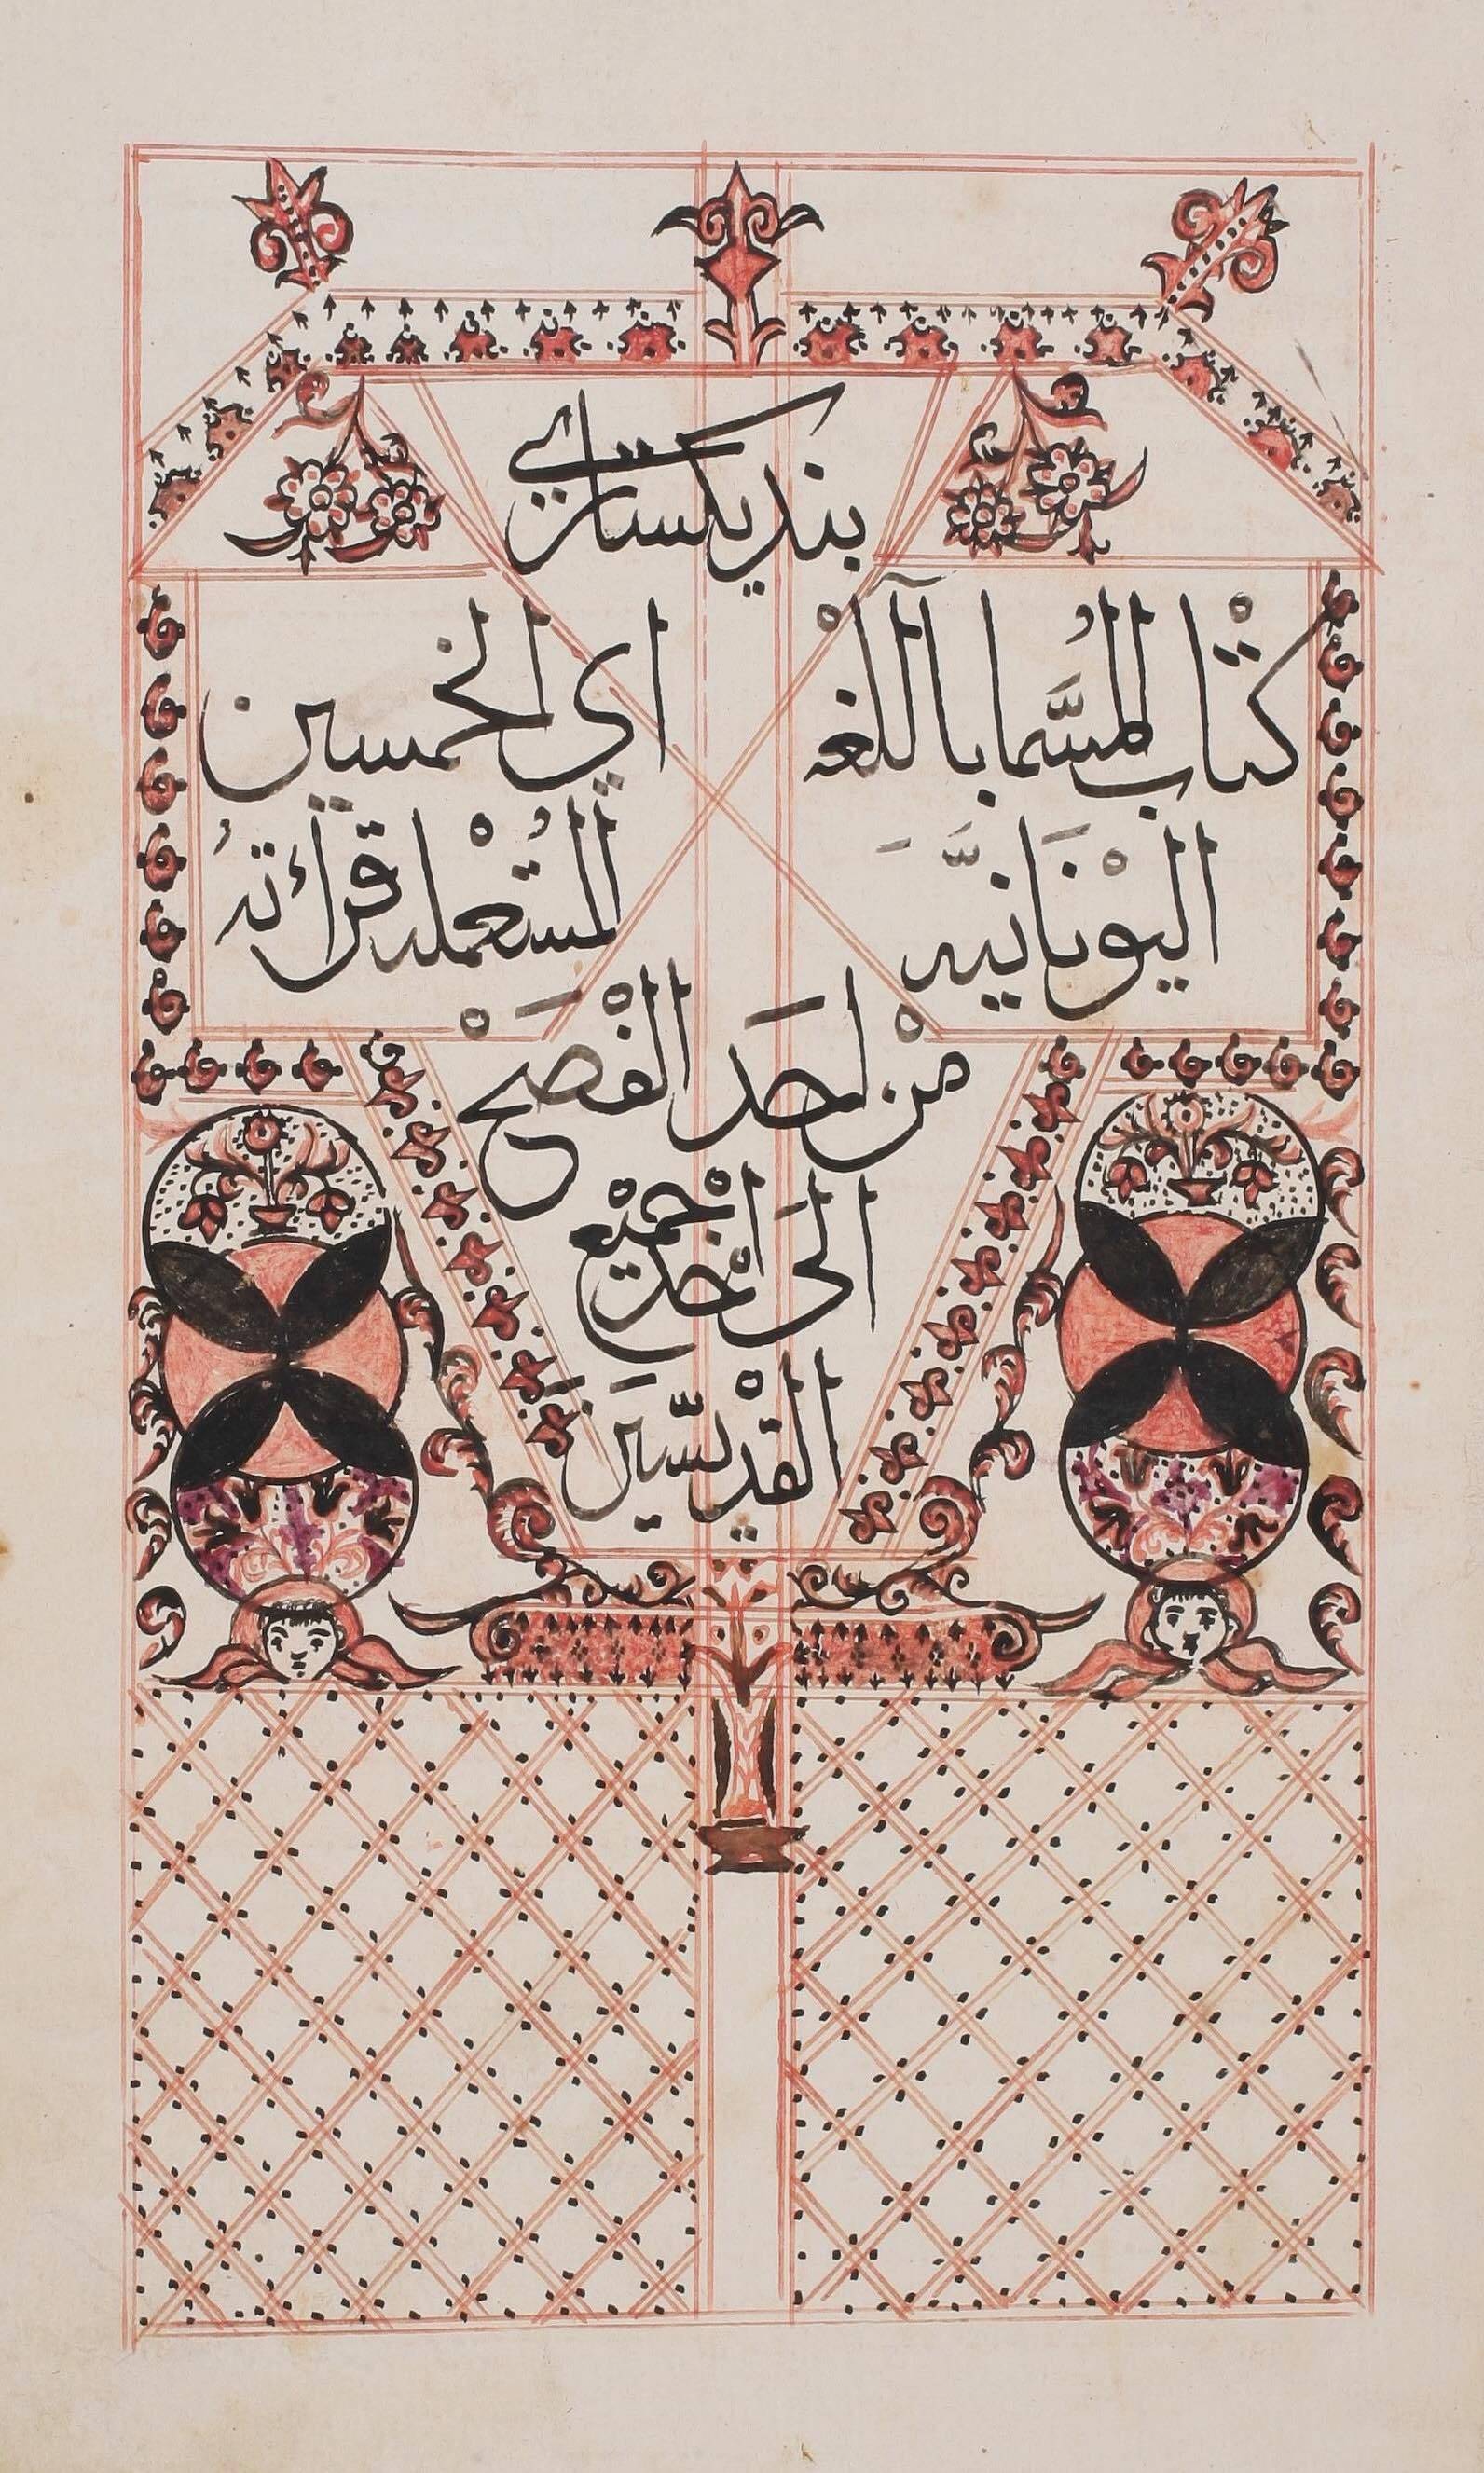 بنديكستاري
كتْاب المُسَّما باآللغْه
اليوْنَانيَّه
اي الخمسين
المُستعْمله قرأئتهُ
منْ احَد الفْصَحْ
الىَ احْد جْميْع
القدْيسّيَن